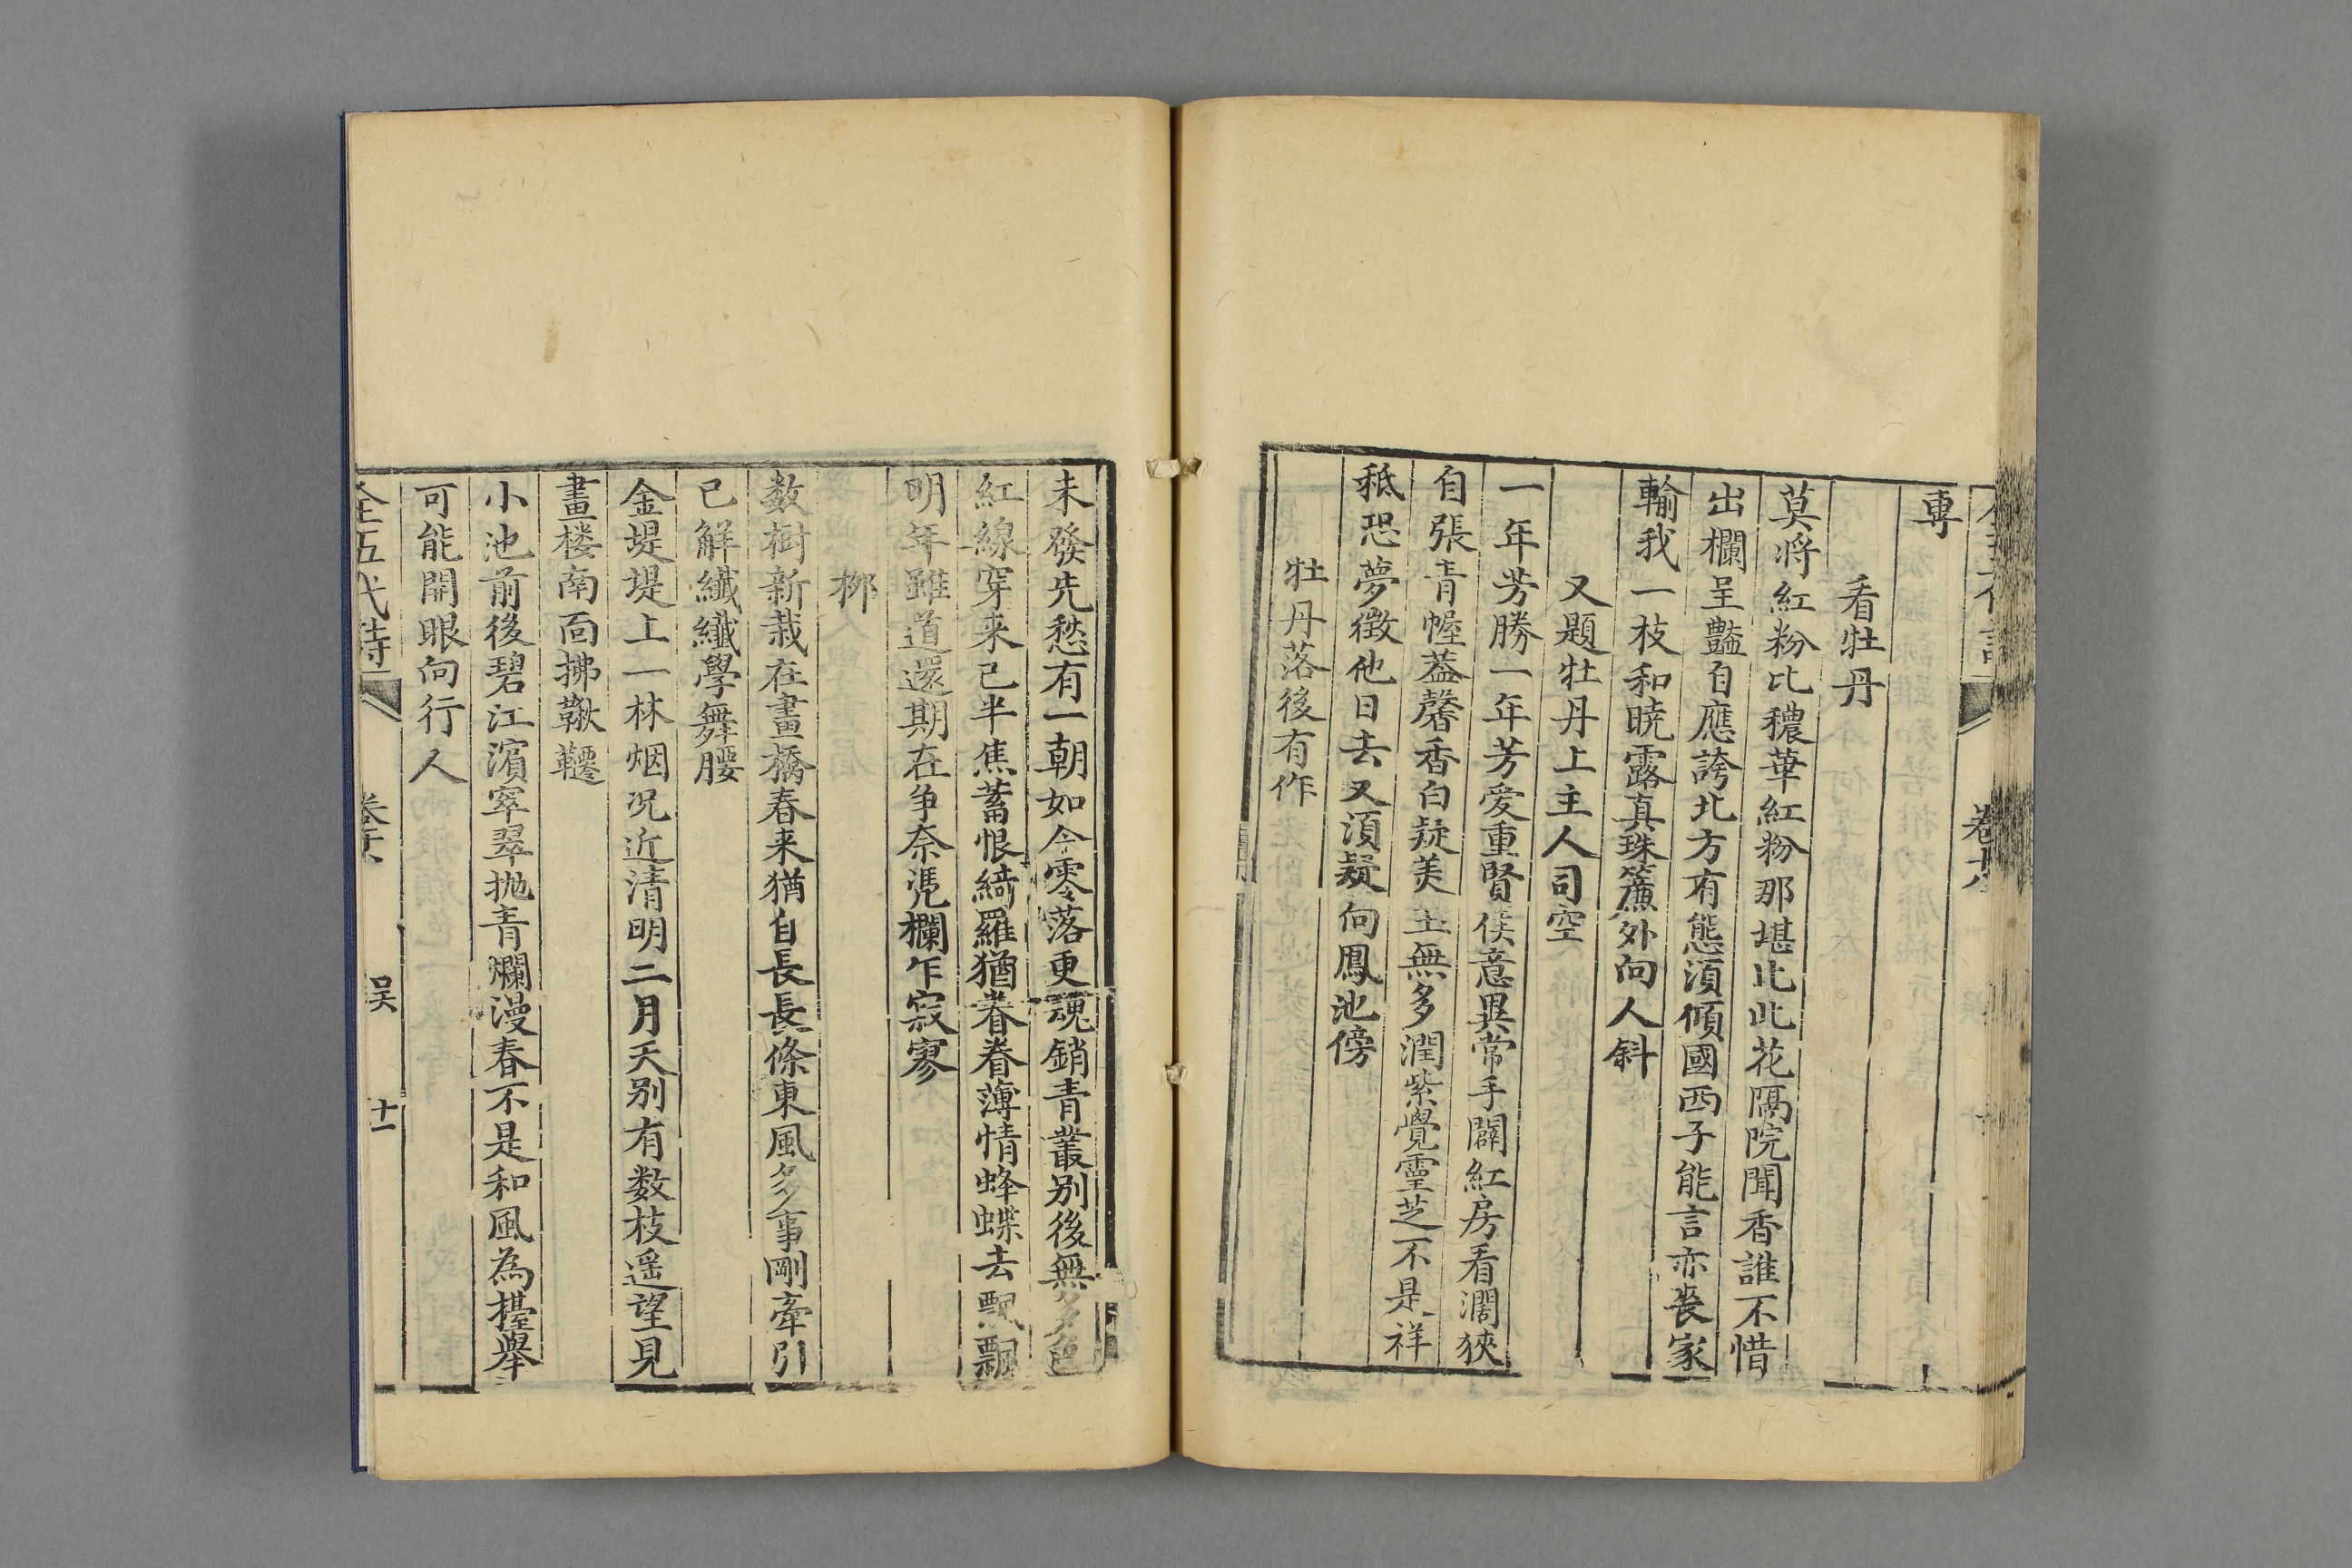 專
看牡丹
莫將紅粉比穠華紅粉那堪比此花隔院聞香誰不惜
出欄呈豔自應誇北方有態須傾國西子能言亦喪家
輸我一枝和曉露真珠簾外向人斜
又題牡丹上主人司空
一年芳勝一年芳愛重賢侯意異常手闢紅房看濶狹
自張青幄葢馨香白疑美玉無多潤紫覺靈芝不是祥
秪恐夢徵他日去又須疑向鳳池傍
牡丹落後有作
未發先愁有一朝如今零落更魂銷青叢别後無多色
紅線穿来已半焦蓄恨綺羅猶眷眷薄情蜂蝶去飄飄
明年雖道還期在争奈凴欄乍寂寥
栁
数樹新栽在畫橋春来猶自長長條東風多事剛牽引
已解纖纖學舞腰
金堤堤上一林烟况近清明二月天别有数枝遥望見
畫楼南面拂鞦韆
小池前後碧江濱窣翠抛青爛漫春不是和風為擡舉
可能開眼向行人
全五代詩 卷十八 吴 十一